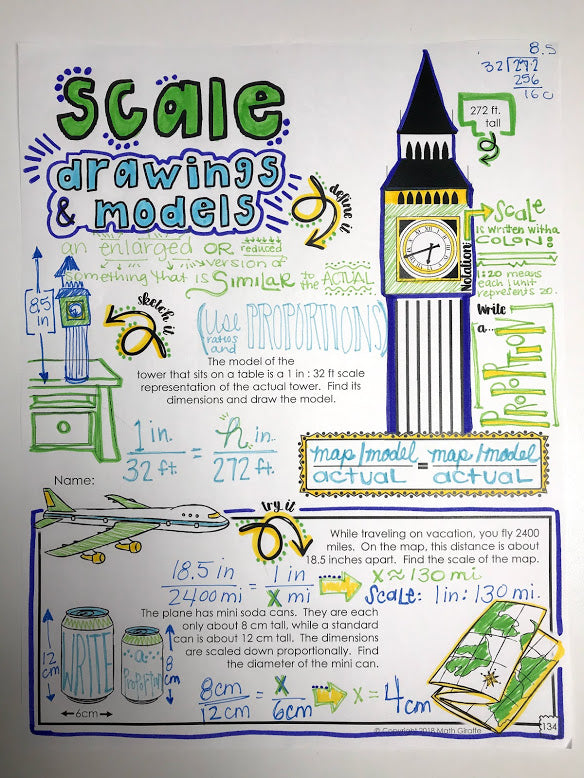 scale
drawings
& models
8.5
32 272
256
160
272 ft.
tall
define it
an enlarged OR reduced
version of
something that is Similar to the ACTUAL
Scale
is written with a
COLON:
Notation:
1:20 means
each 1 unit
represents 20.
Write
a...
PROPORTION
8.5
in
sketch it
(Use PROPORTIONS)
ratios
and
The model of the
tower that sits on a table is a 1 in : 32 ft scale
representation of the actual tower. Find its
dimensions and draw the model.
1 in. = h in.
32 ft. 272 ft.
map/model = map/model
actual actual
Name:
try it
While traveling on vacation, you fly 2400
miles. On the map, this distance is about
18.5 inches apart. Find the scale of the map.
18.5 in = 1 in
2400 mi X mi
X ≈ 130 mi
Scale: 1 in: 130 mi.
The plane has mini soda cans. They are each
only about 8 cm tall, while a standard
can is about 12 cm tall. The dimensions
are scaled down proportionally. Find
the diameter of the mini can.
12
cm
WRITE
a
Proportion
8
cm
6cm
8cm = X
12cm 6cm
X = 4cm
© Copyright 2018 Math Giraffe
134